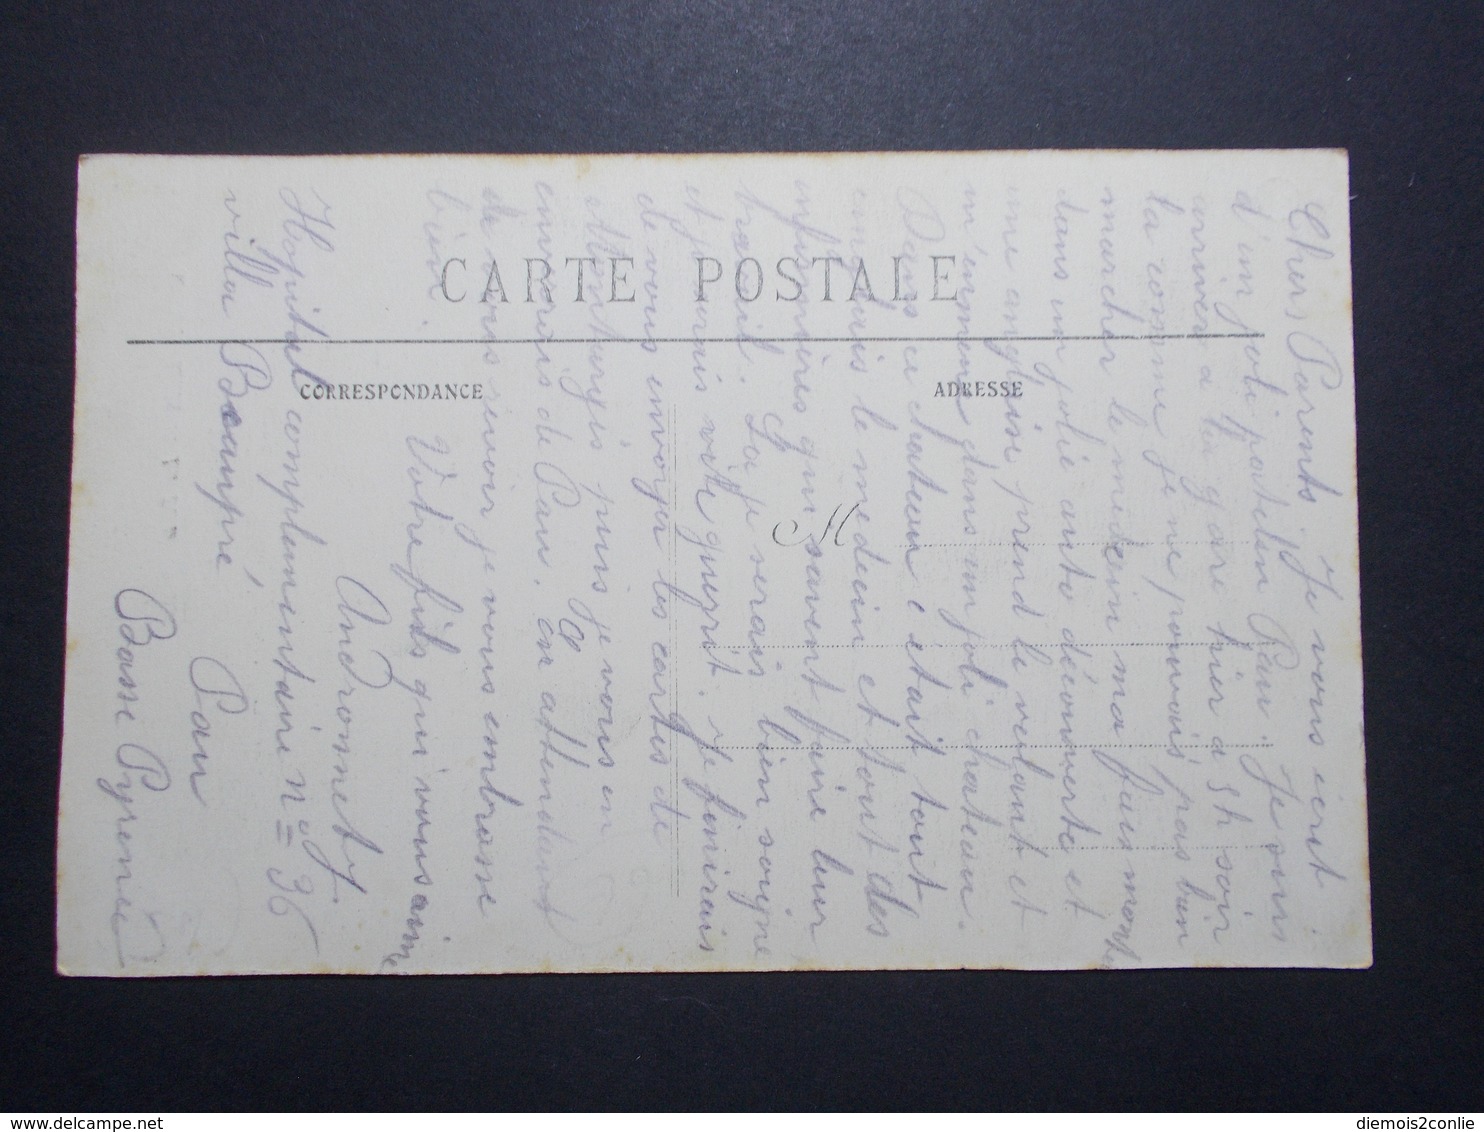 CARTE POSTALE
CORRESPONDANCE
ADRESSE
M
Chers Parents. Je vous écrit
d'un joli patelin Pau. Je suis
arriver a la gare hier a 5h soir
la comme je ne pouvais pas bien
marcher le midecin ma fais monter
dans une jolie auto décourverte et
une anglaise prend le volant et
m'enmene dans un joli chateau.
Dans ce chateau c'etait tout
anglais le medecin et tout des
infirmières qui savent faire leur
travail. La je serais bien soigne
et je serais vite guerit. Je finirais
de vous envoyer les cartes de
Montargis puis je vous en
enverrais de Pau. En attendant
de vous revoir je vous embrasse
bien.
Votre fils qui vous aime
Andromnet
Hopital complementaire n° = 36
villa Beaupré
Pau
Basse Pyrenée
diemois2conlie